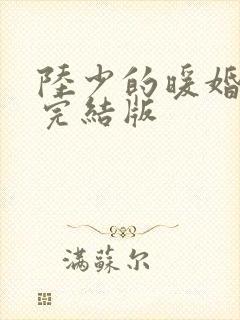 陸少的暖婚
完結版
满蘇尔